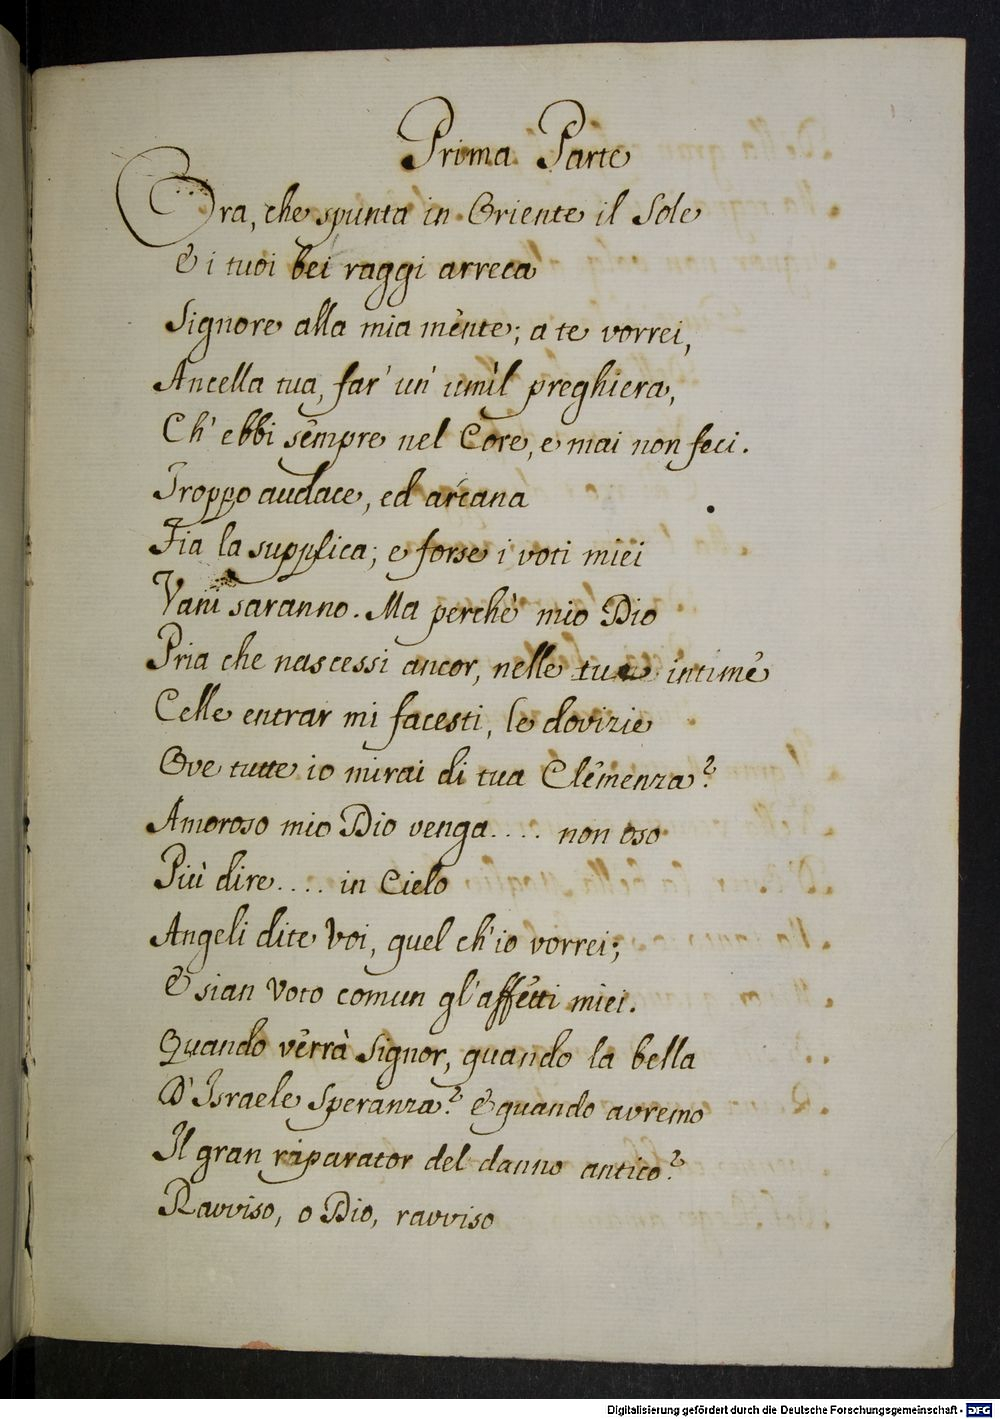 Prima Parte
Ora, che spunta in Oriente il Sole
E i tuoi bei raggi arreca
Signore alla mia mente; a te vorrei,
Ancella tua, far' un' umìl preghiera,
Ch' ebbi sempre nel Core, e mai non feci.
Troppo audace, ed arcana
Fia la supplica; e forse i voti miei
Vani saranno. Ma perchè mio Dio
Pria che nascessi ancor, nelle tue intime
Celle entrar mi facesti, le dovizie
Ove tutte io mirai di tua Clemenza?
Amoroso mio Dio venga.... non oso
Più dire.... in Cielo
Angeli dite Voi, quel ch'io vorrei;
E sian Voto comun gl'affetti miei.
Quando verrà Signor, quando la bella
D'Israele Speranza? e quando avremo
Il gran riparator del danno antico?
Ravviso, o Dio, ravviso
Digitalisierung gefördert durch die Deutsche Forschungsgemeinschaft - DFG